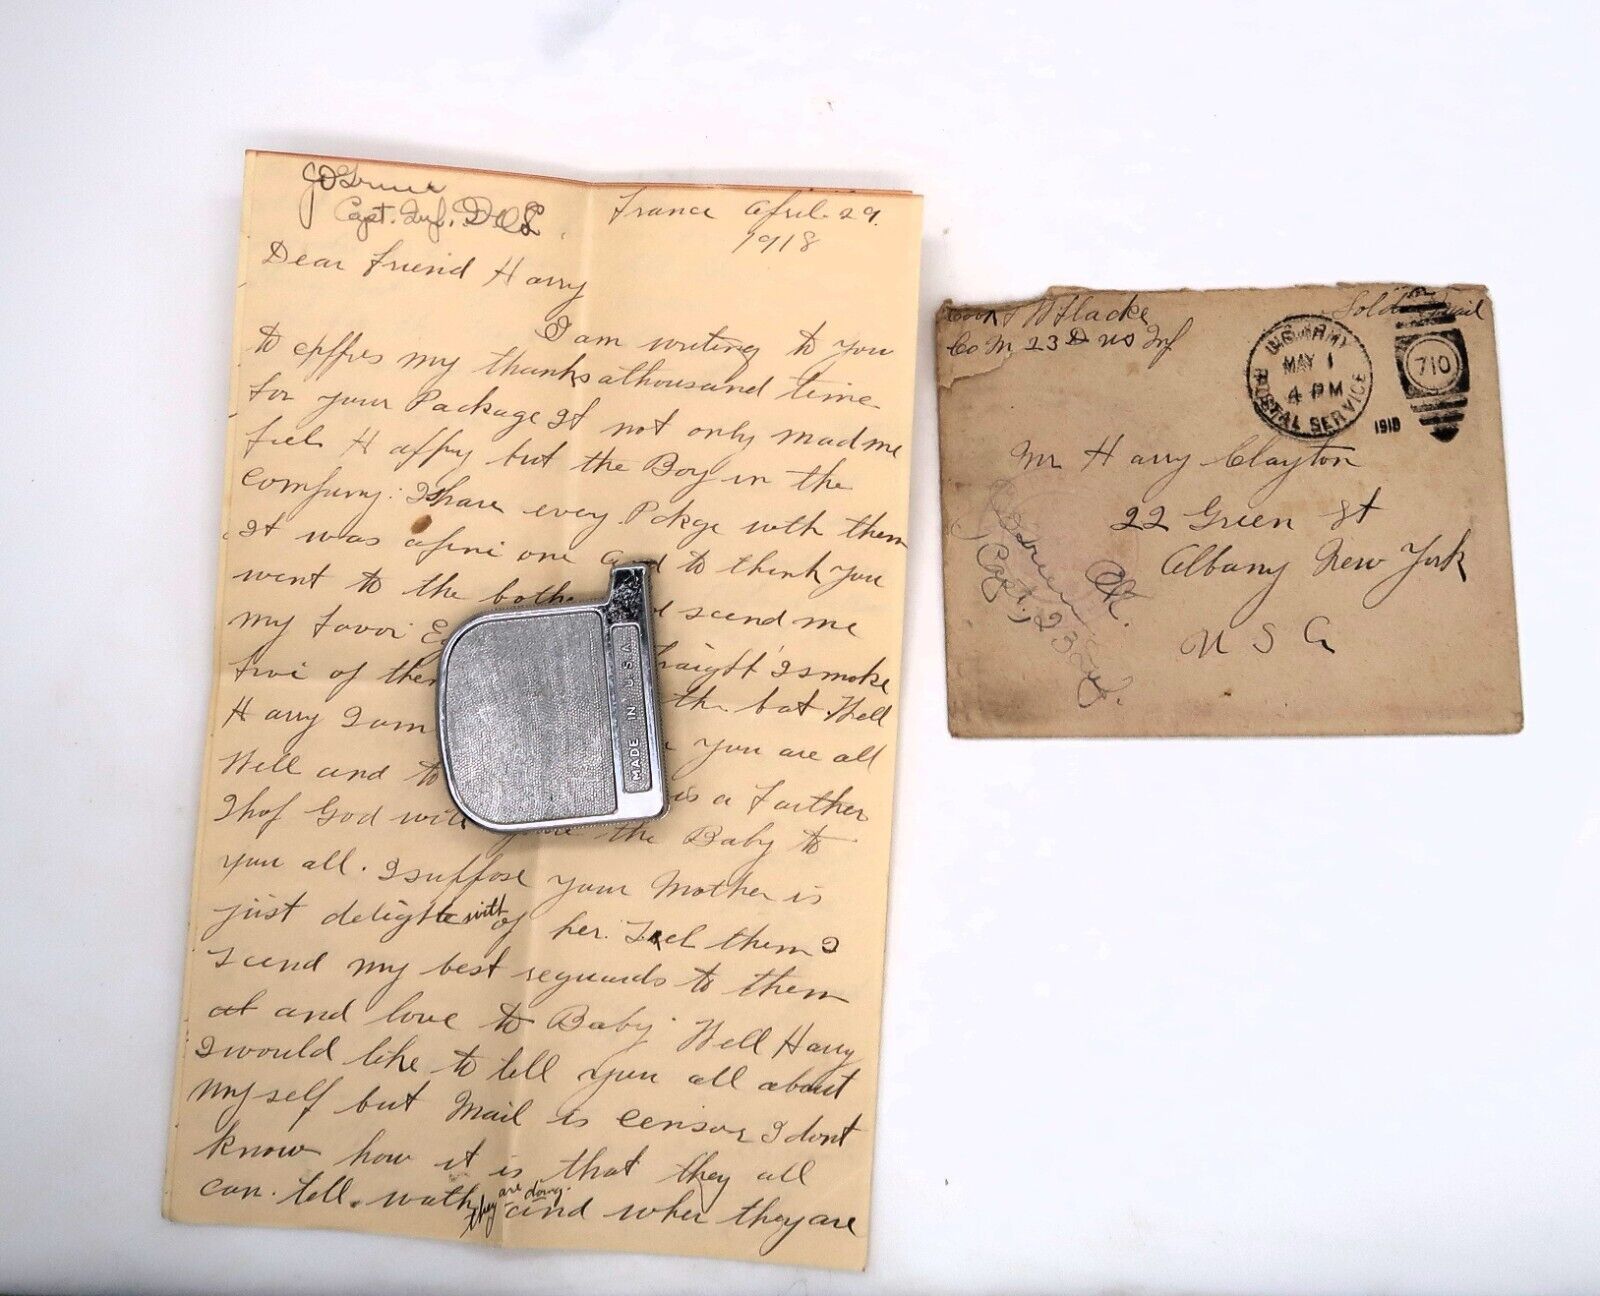 Capt. Inf.
France April. 29.
1918
Dear Friend Harry
I am writing to you
to epffres my thanks a thousand time
for your Package It not only mad me
feel Happy but the Boy in the
company. I share evey Pckge with them
It was a fine one and to think you
went to the bothe scend me
my favor
two of them straight I smoke
Harry I am the bat. Well
you are all
Well and to is a Farther
I hof God will the Baby to
you all. I suppose your Mother is
just delighte with of her. Teel them I
scend my best reguards to them
at and love to Baby. Well Harry
I would like to tell you all about
my self but Mail is censor I dont
know how it is that they all
can. tell. wath they are doing. and wher they are
MADE IN U.S.A.
Flacke
Co M 23d US Inf
Soldier Mail
U.S. ARMY
MAY 1
4 PM
POSTAL SERVICE
1918
710
Mr Harry Clayton
22 Green St
Albany New York
U S A
OK.
Capt., 23 Inf.